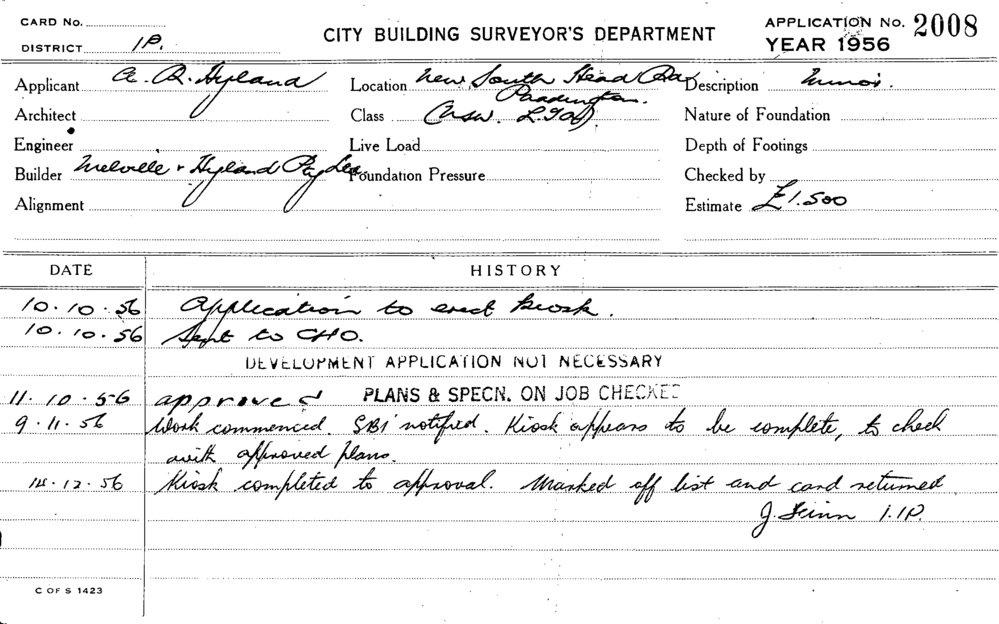 CARD No.
DISTRICT 1P.
CITY BUILDING SURVEYOR'S DEPARTMENT
APPLICATION No. 2008
YEAR 1956
Applicant A. R. Hyland Location New South Head Rd Description Minor.
Paddington.
Architect Class Nature of Foundation
Engineer Live Load Depth of Footings
Builder Melville & Hyland Pty Ltd Foundation Pressure Checked by
Alignment Estimate £1.500
DATE HISTORY
10.10.56 Application to erect kiosk.
10.10.56 Sent to CHO.
DEVELOPMENT APPLICATION NOT NECESSARY
11.10.56 approved PLANS & SPECN. ON JOB CHECKED
9.11.56 Work commenced. SBI notified. Kiosk appears to be complete, to check
with approved plans.
14.12.56 Kiosk completed to approval. Marked off list and card returned.
J. Finn 1.1P.
C OF S 1423